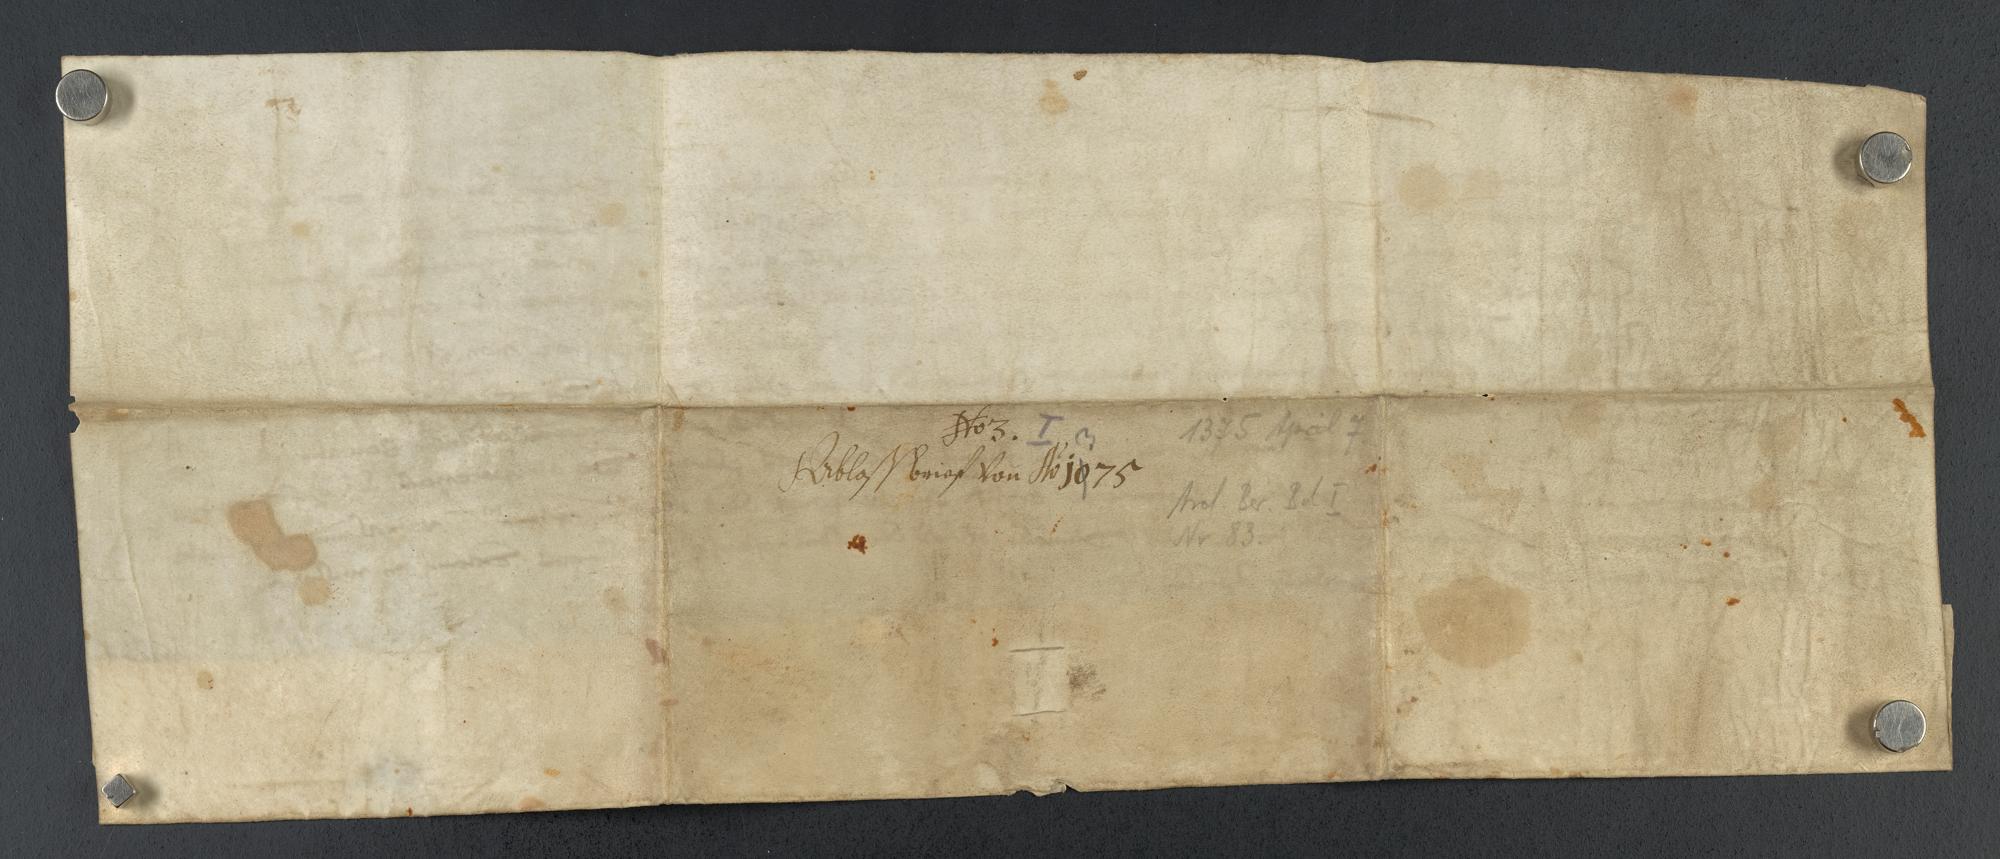 No 3. I
1375 April 7
3
Ablass brief von Ao 1075
Arch. Ber. Bd I
Nr 83.